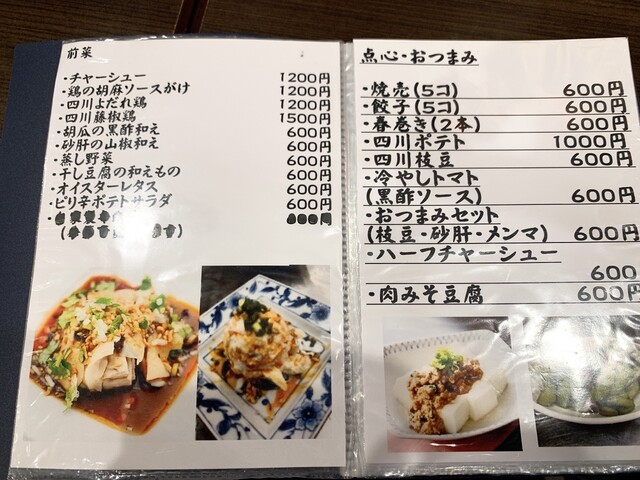 前菜
・チャーシュー 1200円
・鶏の胡麻ソースがけ 1200円
・四川よだれ鶏 1200円
・四川藤椒鶏 1500円
・胡瓜の黒酢和え 600円
・砂肝の山椒和え 600円
・蒸し野菜 600円
・干し豆腐の和えもの 600円
・オイスターレタス 600円
・ピリ辛ポテトサラダ 600円
点心・おつまみ
・焼売(5コ) 600円
・餃子(5コ) 600円
・春巻き(2本) 600円
・四川ポテト 1000円
・四川枝豆 600円
・冷やしトマト
(黒酢ソース) 600円
・おつまみセット
(枝豆・砂肝・メンマ) 600円
・ハーフチャーシュー
600
・肉みそ豆腐 600円